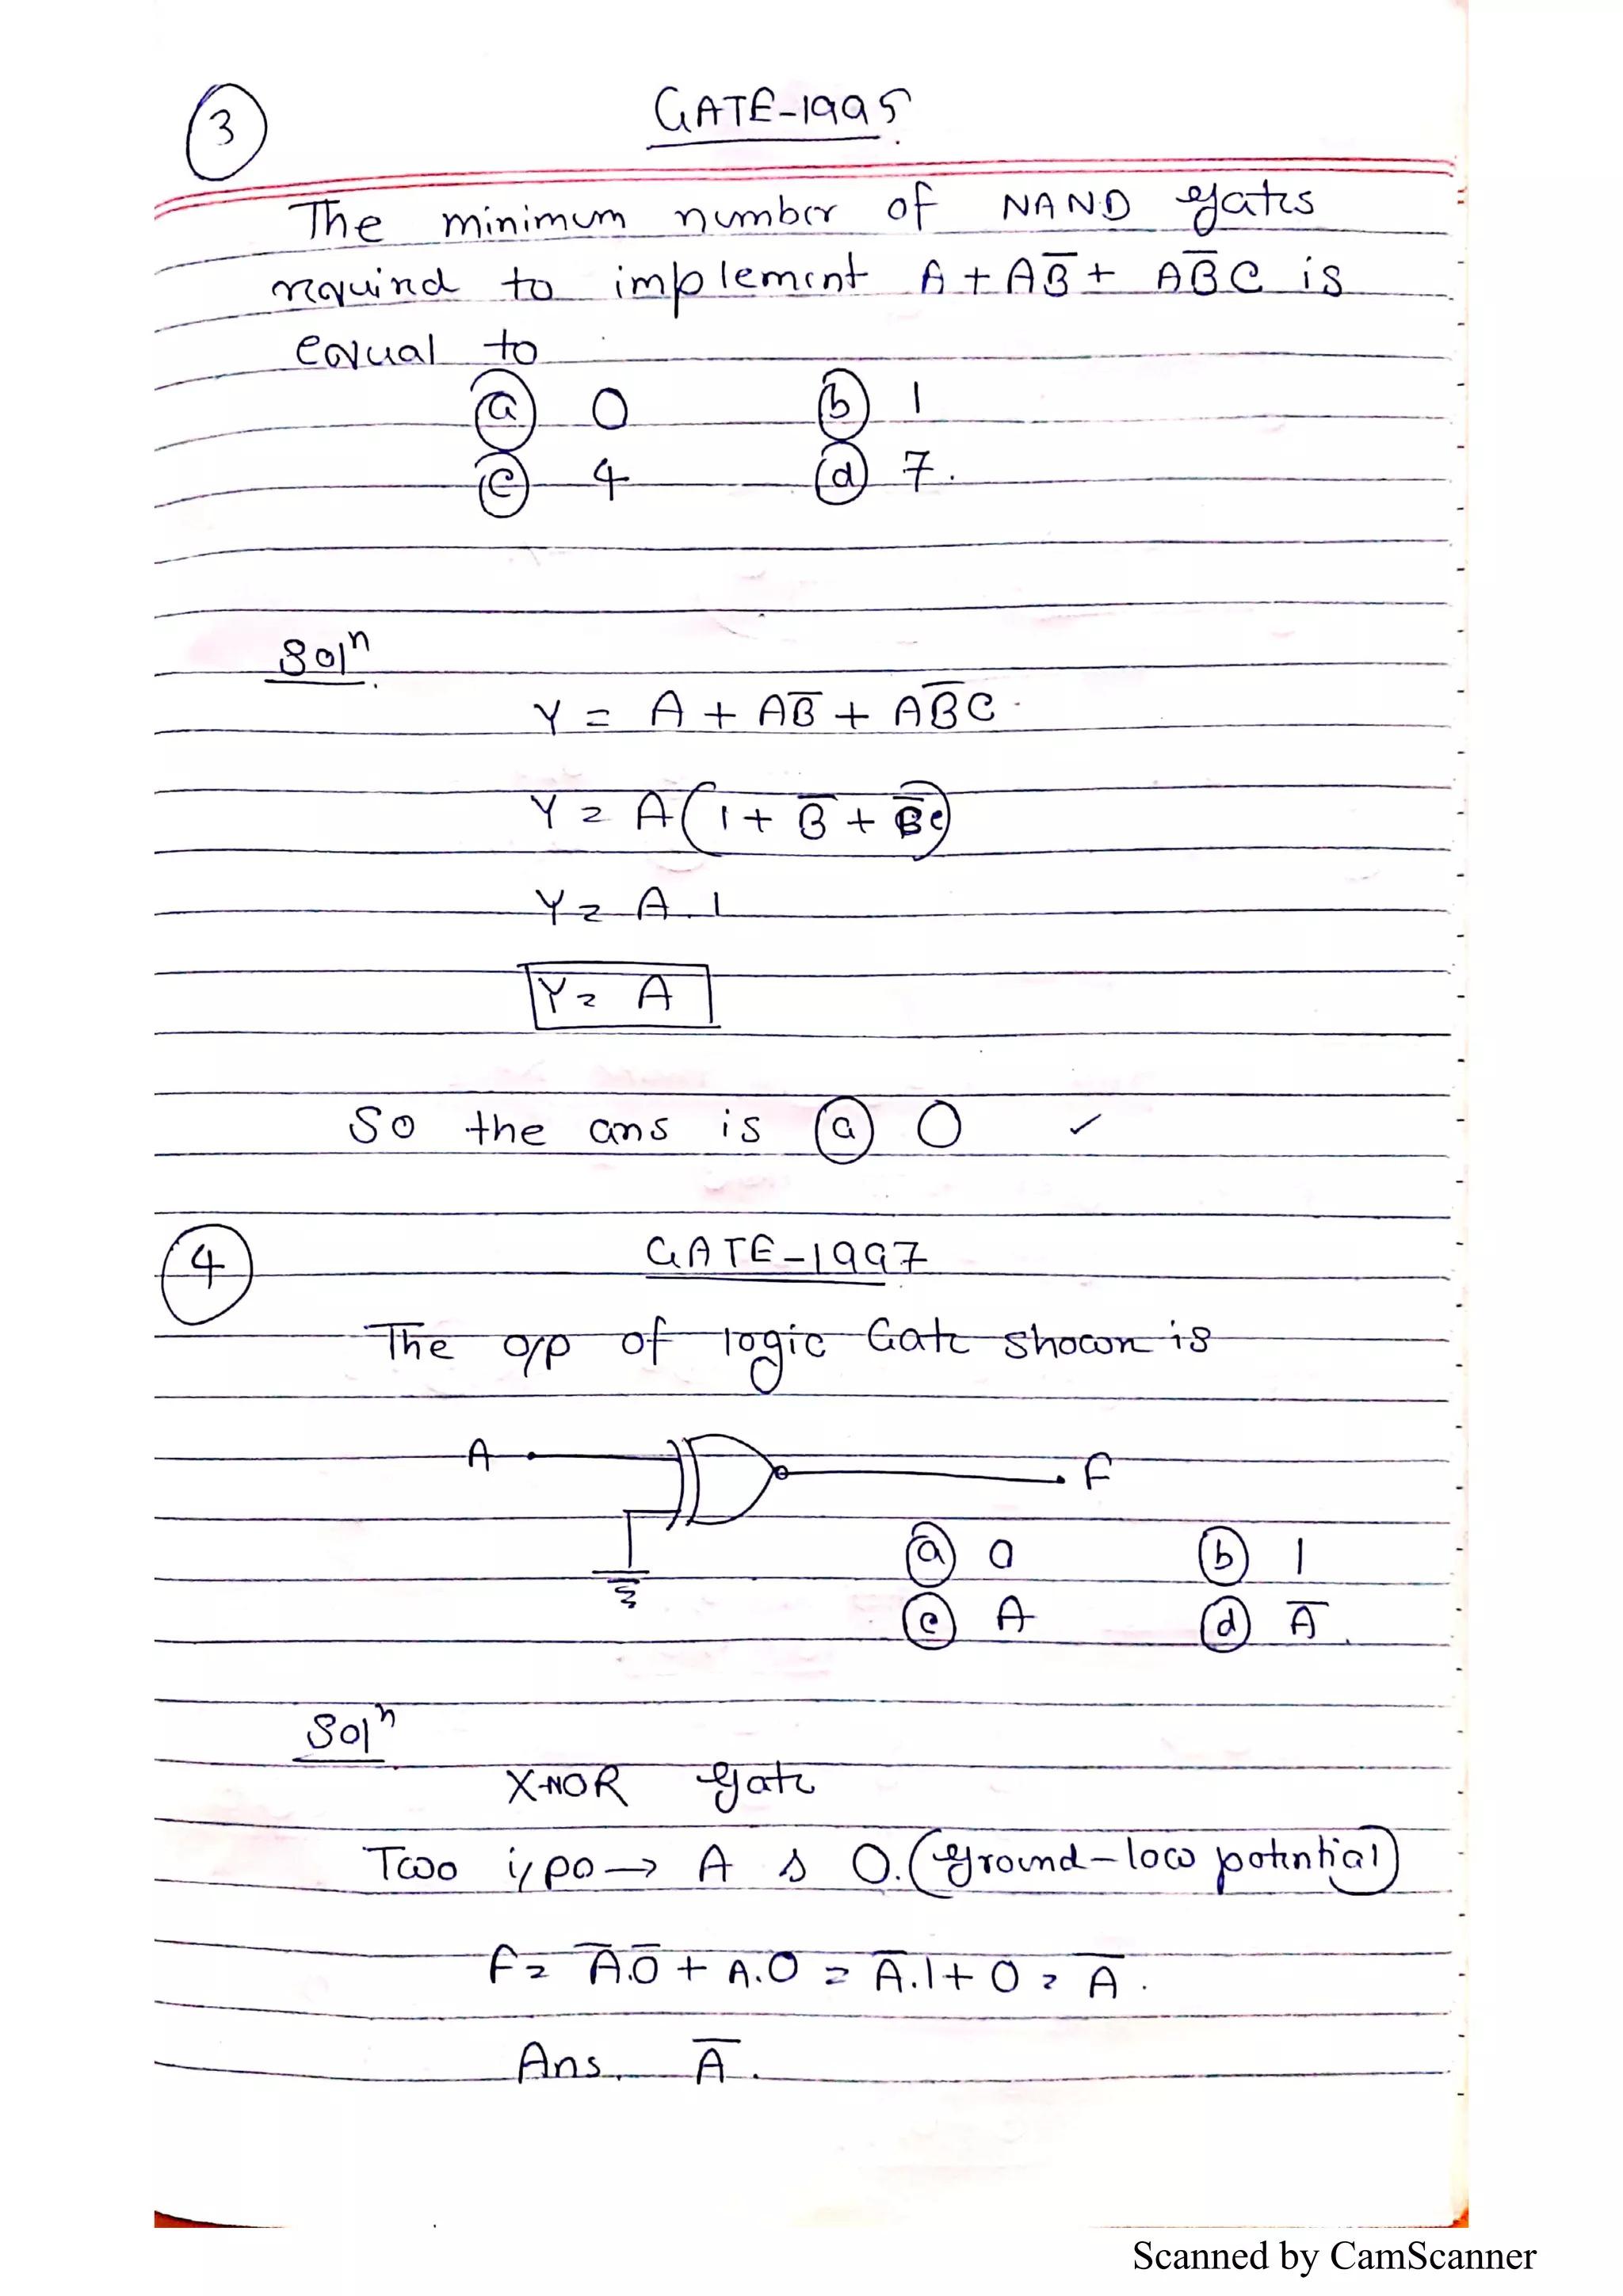 3
GATE-1995
The minimum number of NAND gates
required to implement A + AB̅ + AB̅C is
equal to
(a) 0 (b) 1
(c) 4 (d) 7.
Solⁿ
Y = A + AB̅ + AB̅C.
Y = A(1 + B̅ + B̅C)
Y = A.1
Y = A
So the ans is (a) 0 ✓
4
GATE-1997
The o/p of logic Gate shown is
A F
(a) 0 (b) 1
(c) A (d) A̅.
Solⁿ
X-NOR gate
Two i/ps → A & 0. (ground-low potential)
F = A̅.0̅ + A.0 = A̅.1 + 0 = A̅.
Ans. A̅.
Scanned by CamScanner